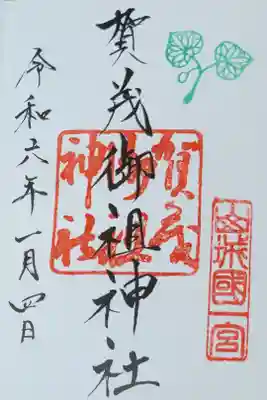 山城國一宮
賀茂御祖神社
令和六年一月四日